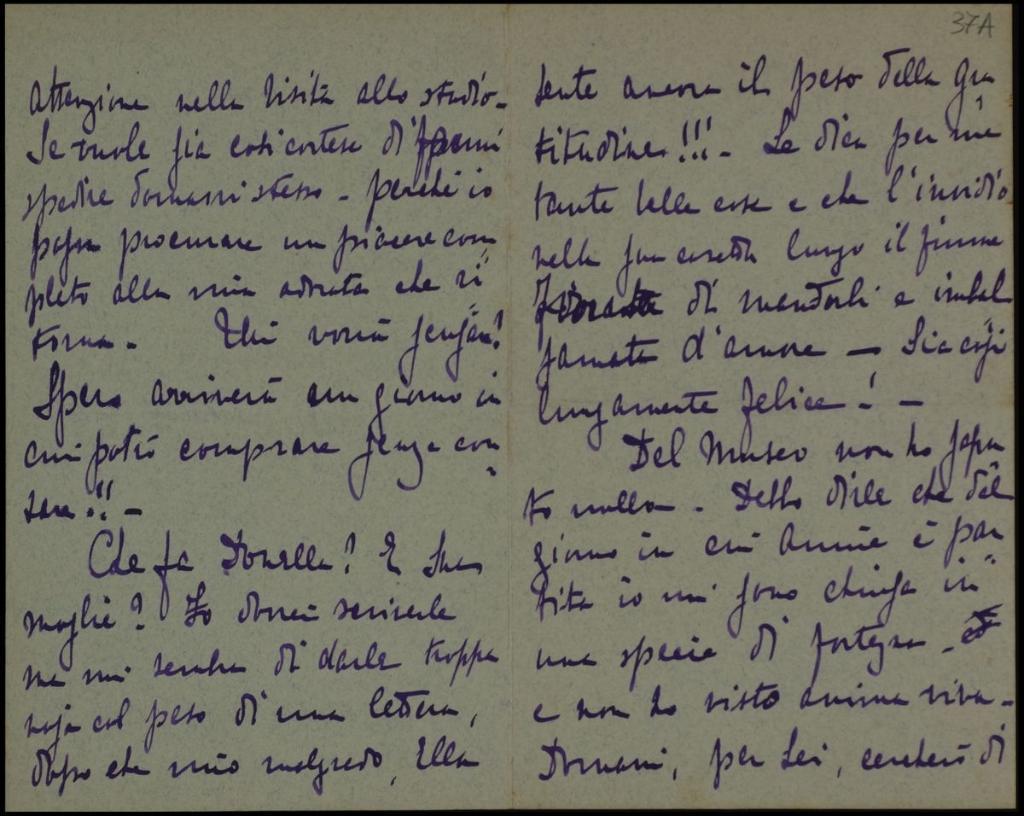 37A
attenzione nella visita allo studio.
Se vuole sia così cortese di farmi
spedire domani stesso - perché io
possa procurare un piacere com
pleto alla mia adorata che ri
torna. Chi vorrà
Spero arriverà un giorno in
cui potrò comprare senza con
tare!! -
Che fa Donella? E sua
moglie? Io dovrei scriverle
ma mi sembra di darle troppa
noja col peso di una lettera,
dopo che mio malgrado, Ella
sente ancora il peso della gra
titudine!!! - Le dica per me
tante belle cose e che l'invidio
nella sua casetta lungo il fiume
di mandorli e imbal
samata d'amore - Sia così
lungamente felice! -
Del Museo non ho sapu
to nulla. Debbo dirle che dal
giorno in cui Annie è par
tita io mi sono chiusa in
una specie di fortezza -
e non ho visto anima viva -
Domani, per Lei, cercherò di